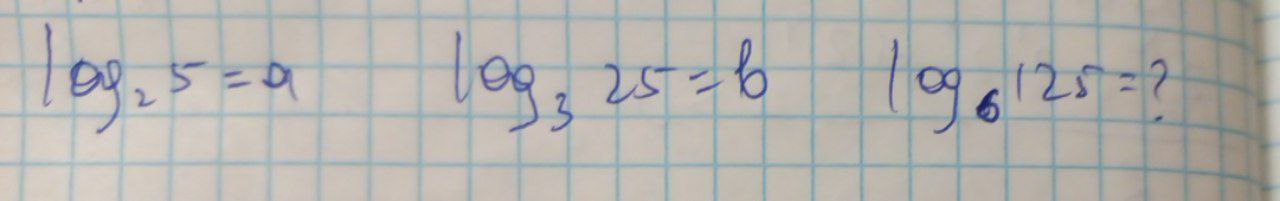 log₂ 5 = a log₃ 25 = b log₆ 125 = ?